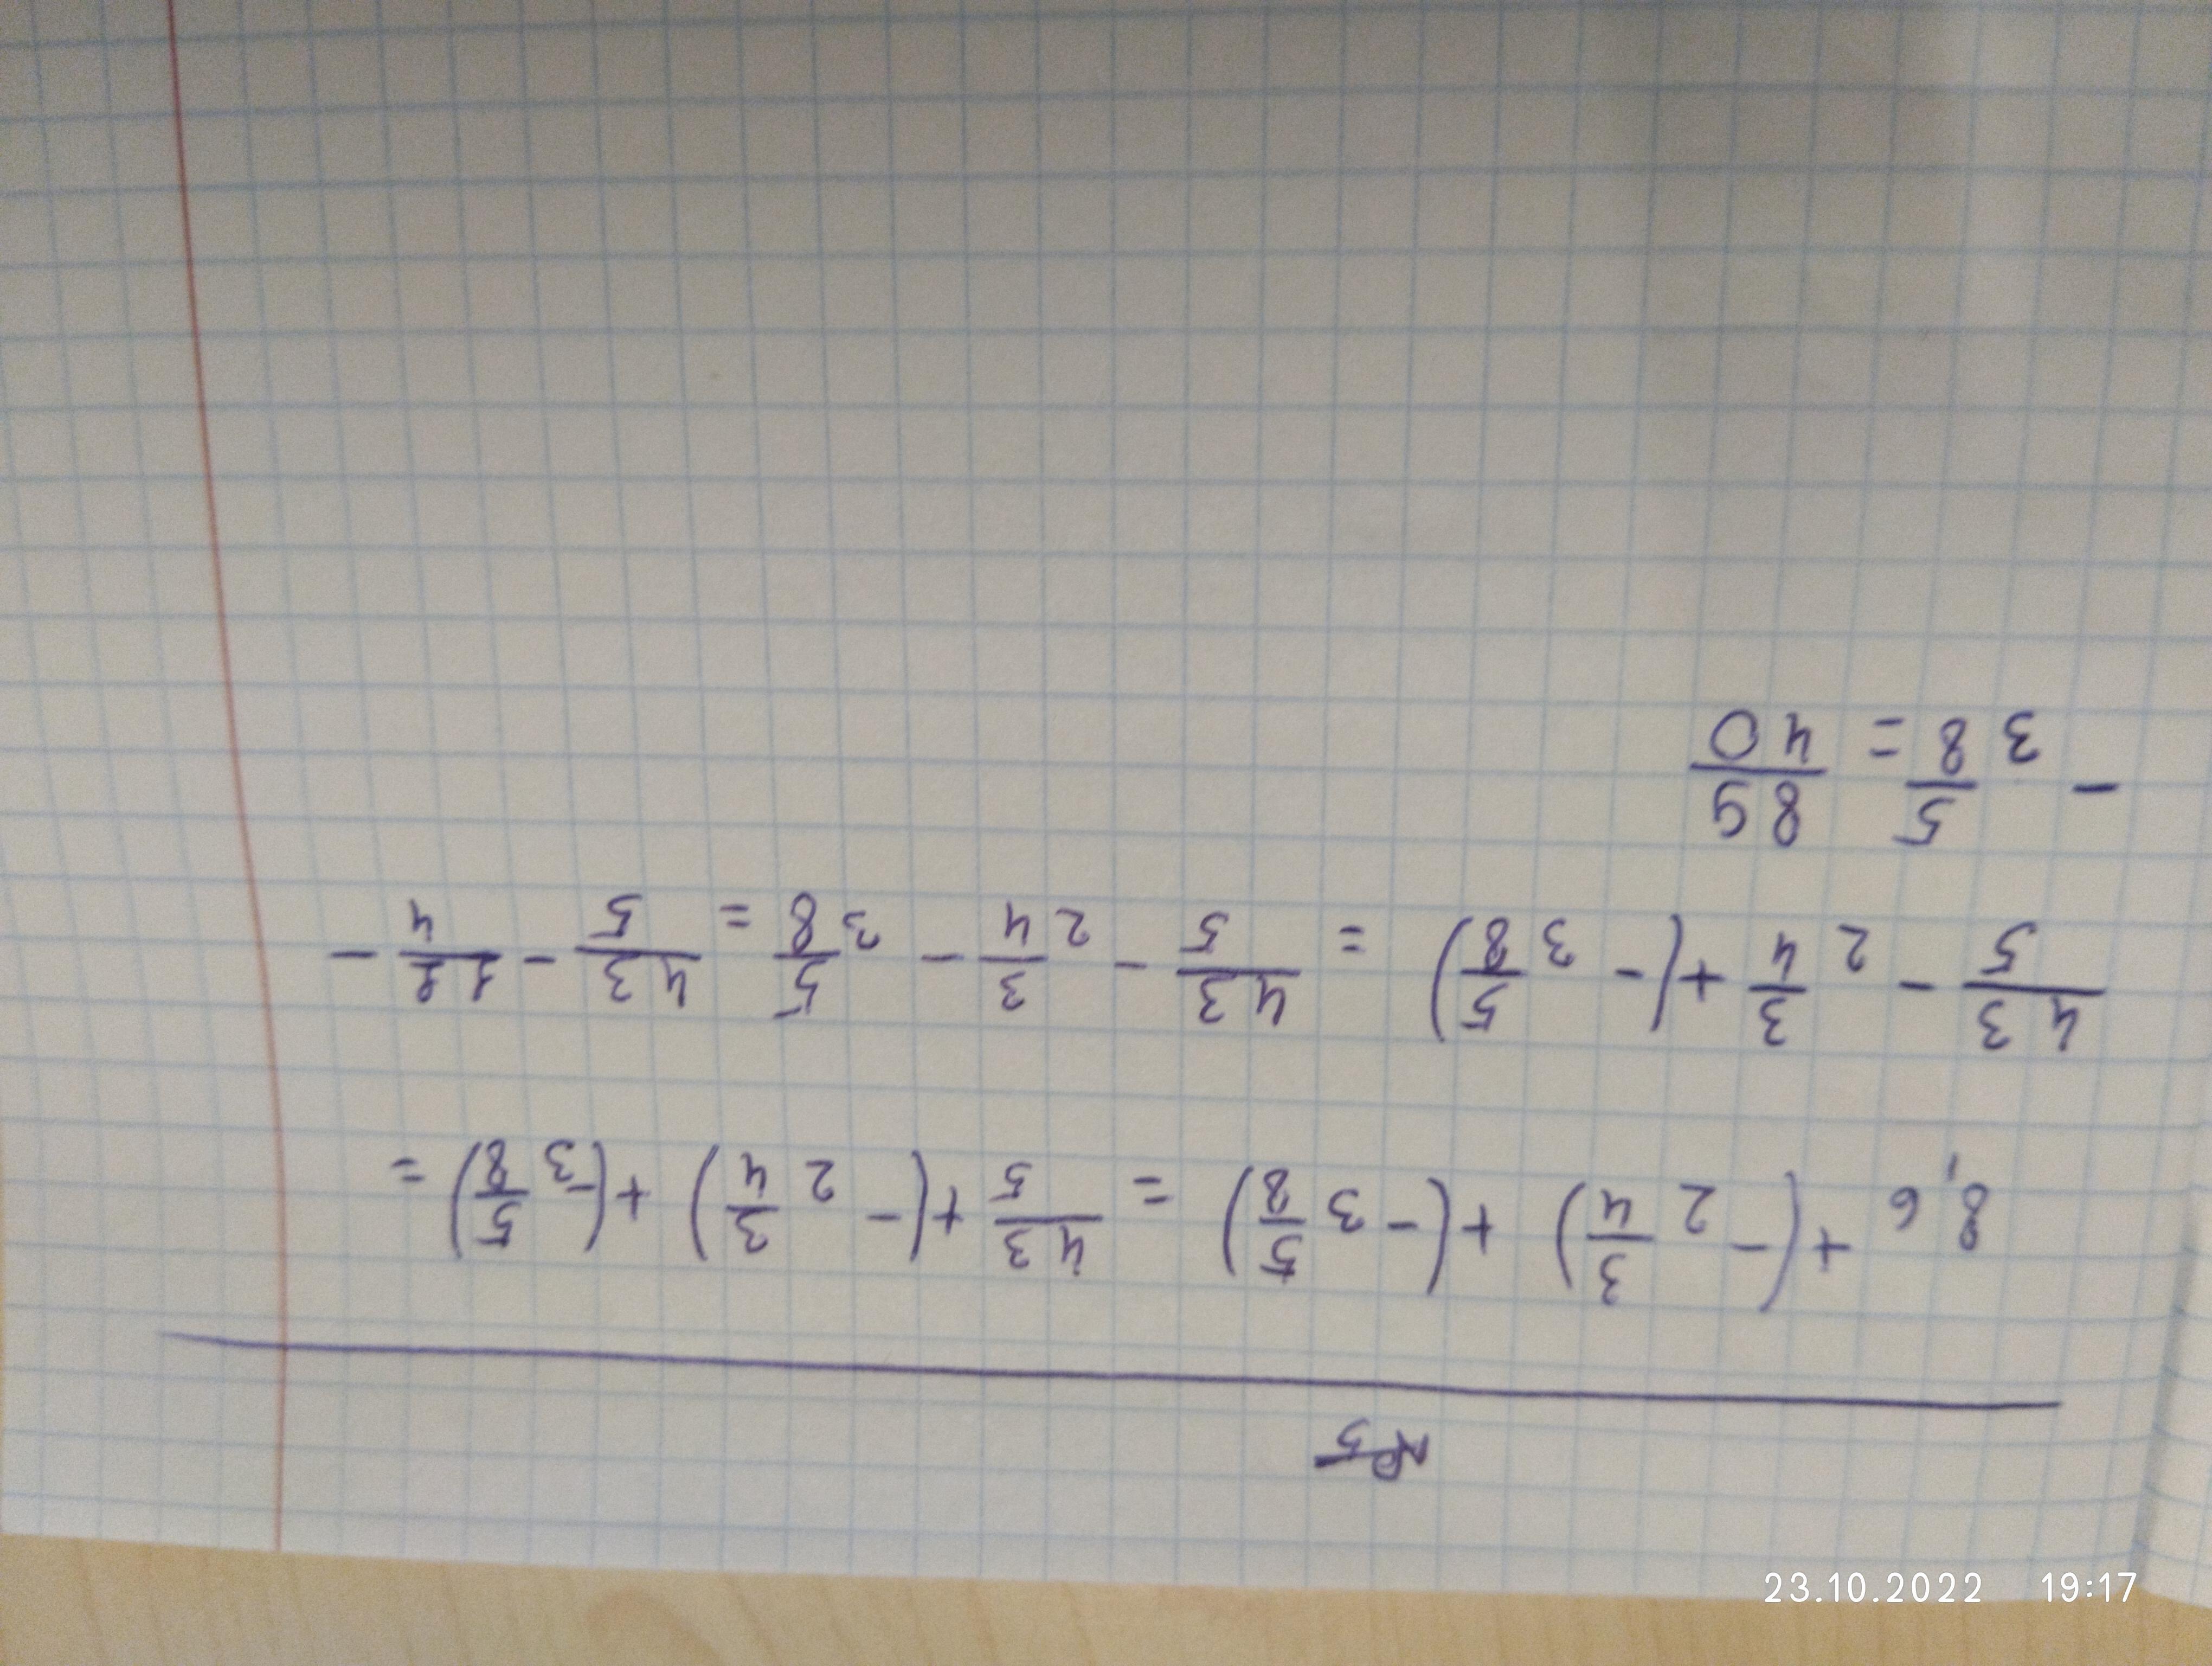 №5
8,6 + (- 2 3/4) + (- 3 5/8) = 43/5 + (- 2 3/4) + (-3 5/8) =
43/5 - 2 3/4 + (- 3 5/8) = 43/5 - 2 3/4 - 3 5/8 = 43/5 - 11/4 -
- 3 5/8 = 89/40
23.10.2022 19:17